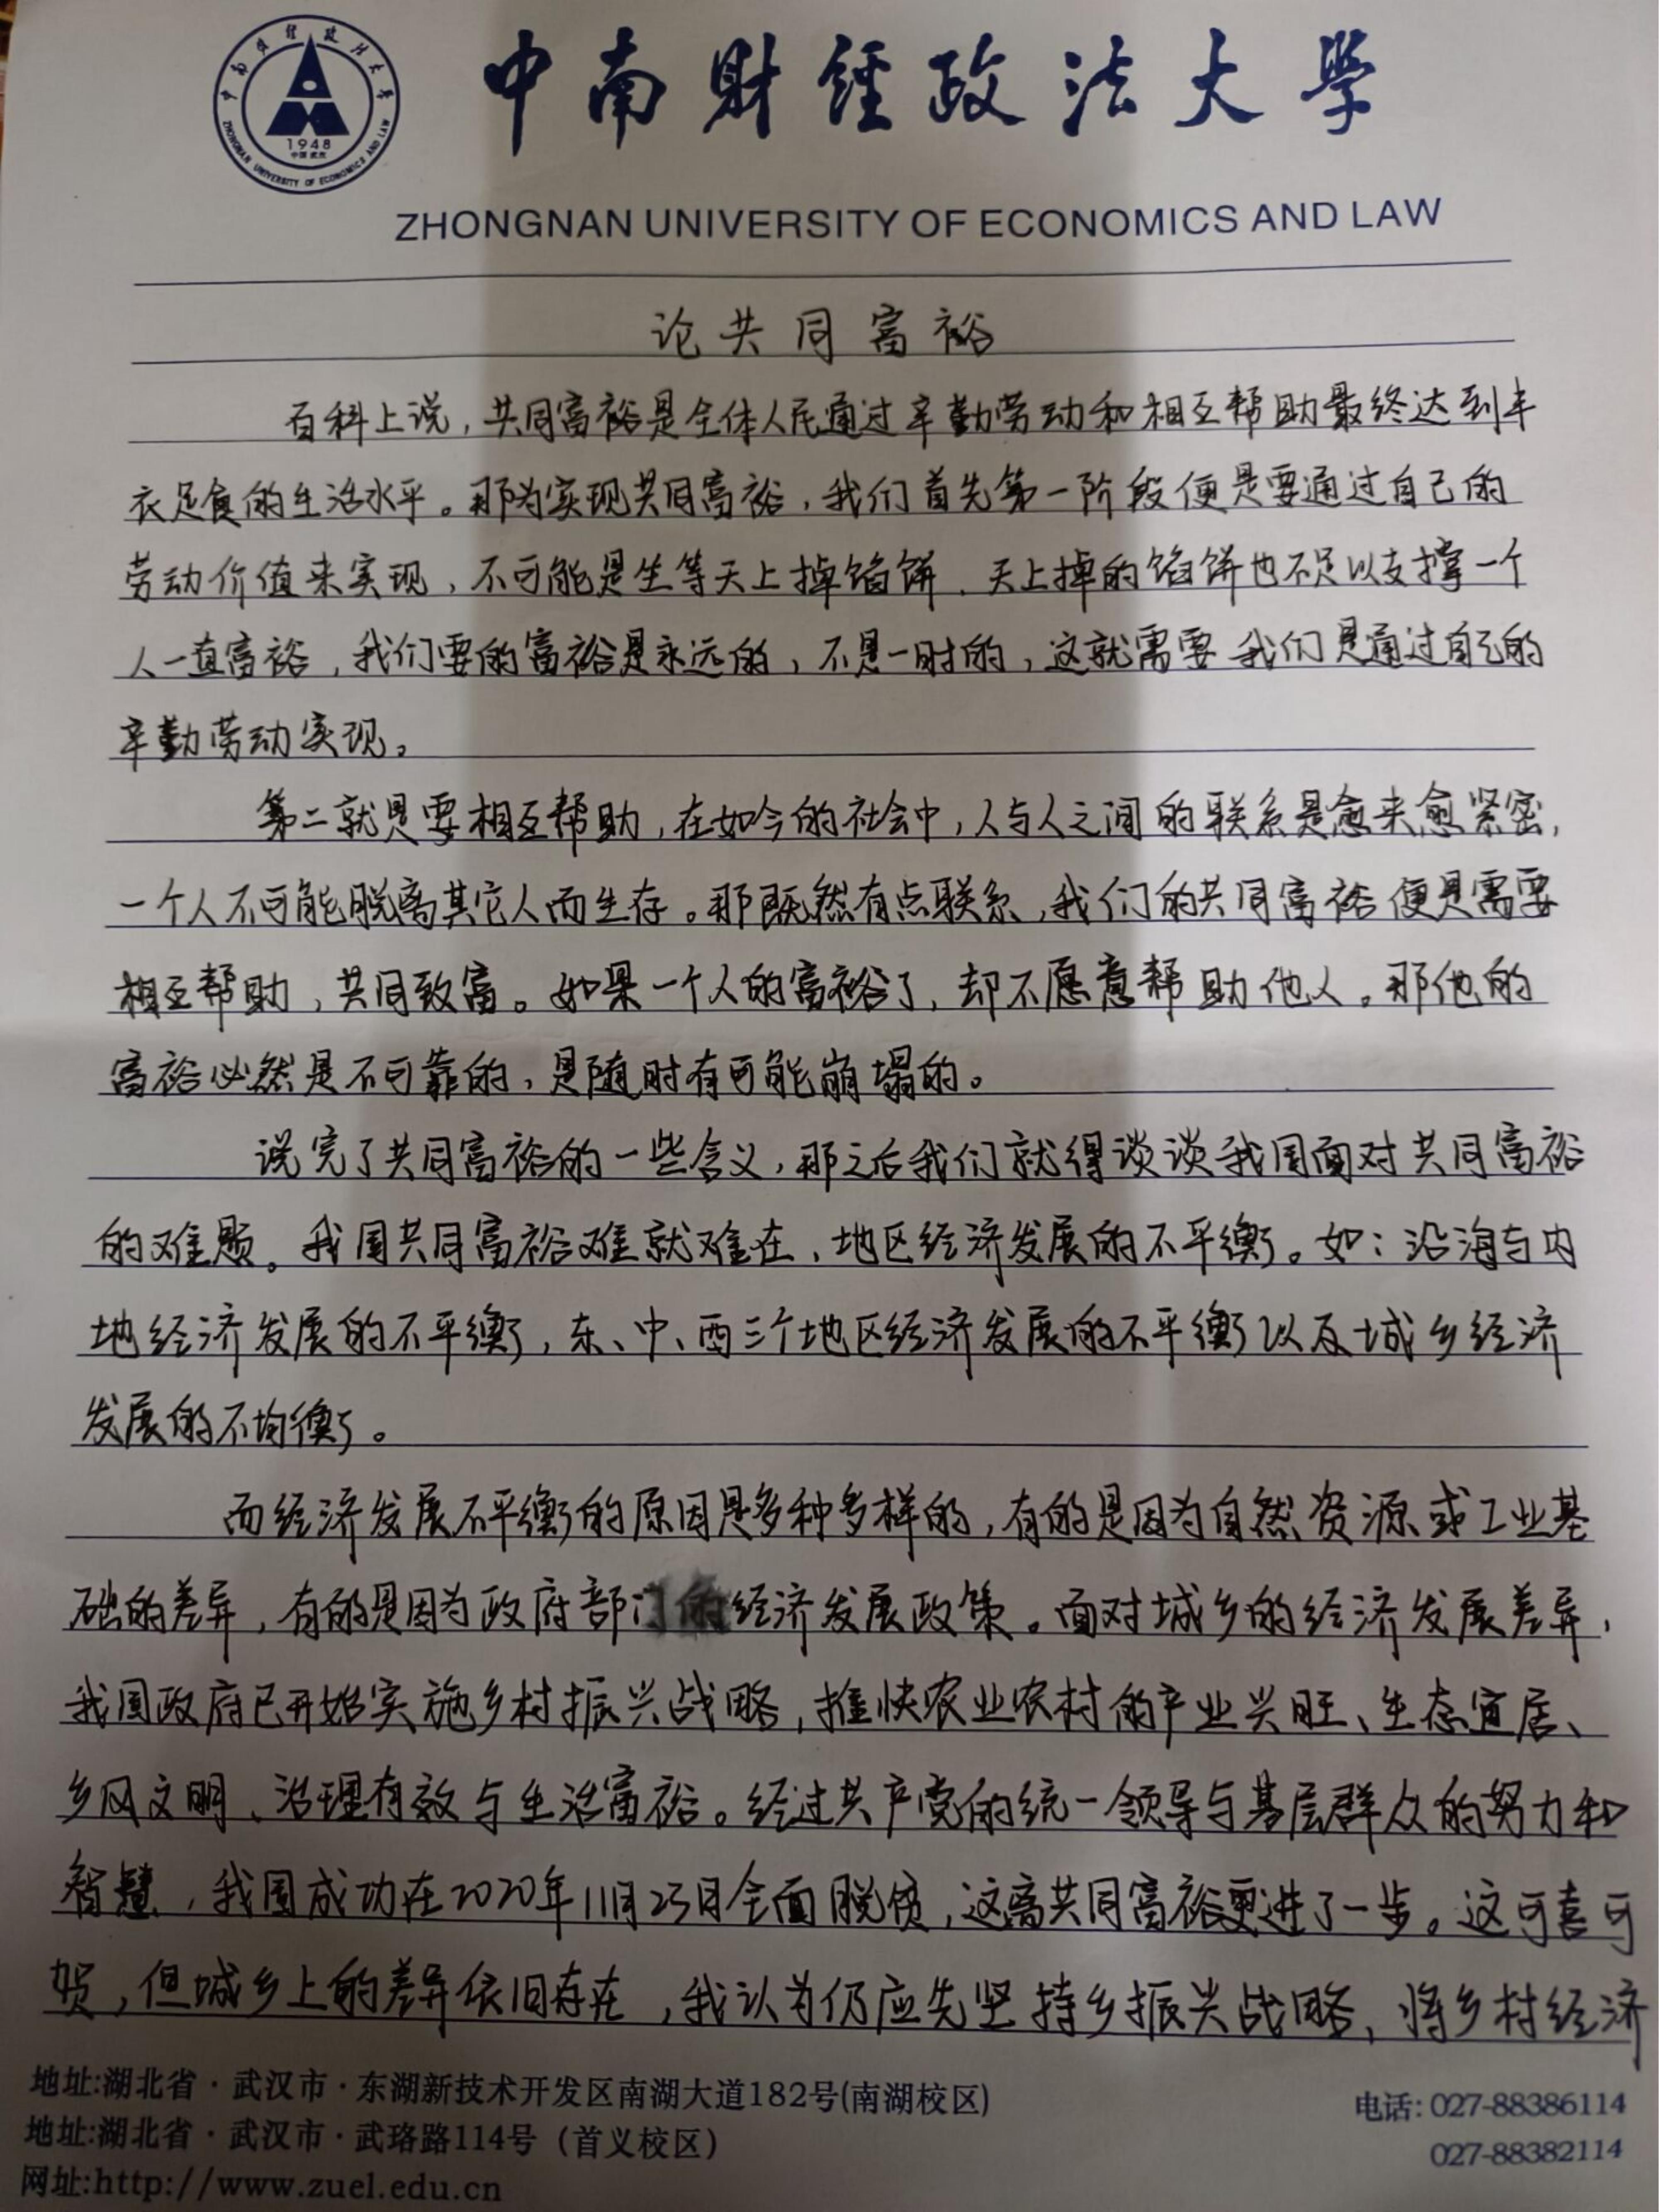 中南财经政法大学
1948
中国·武汉
ZHONGNAN UNIVERSITY OF ECONOMICS AND LAW
中南财经政法大学
ZHONGNAN UNIVERSITY OF ECONOMICS AND LAW
论共同富裕
百科上说，共同富裕是全体人民通过辛勤劳动和相互帮助最终达到丰
衣足食的生活水平。那为实现共同富裕，我们首先第一阶段便是要通过自己的
劳动价值来实现，不可能是坐等天上掉馅饼，天上掉的馅饼也不足以支撑一个
人一直富裕，我们要的富裕是永远的，不是一时的，这就需要我们是通过自己的
辛勤劳动实现。
第二就是要相互帮助，在如今的社会中，人与人之间的联系是愈来愈紧密，
一个人不可能脱离其它人而生存。那既然有点联系，我们的共同富裕便是需要
相互帮助，共同致富。如果一个人的富裕了，却不愿意帮助他人。那他的
富裕必然是不可靠的，是随时有可能崩塌的。
说完了共同富裕的一些含义，那之后我们就得谈谈我国面对共同富裕
的难题。我国共同富裕难就难在，地区经济发展的不平衡。如：沿海与内
地经济发展的不平衡，东、中、西三个地区经济发展的不平衡以及城乡经济
发展的不均衡。
而经济发展不平衡的原因是多种多样的，有的是因为自然资源或工业基
础的差异，有的是因为政府部门的经济发展政策。面对城乡的经济发展差异，
我国政府已开始实施乡村振兴战略，推快农业农村的产业兴旺、生态宜居、
乡风文明、治理有效与生活富裕。经过共产党的统一领导与基层群众的努力和
智慧，我国成功在2020年11月23日全面脱贫，这离共同富裕更进了一步。这可喜可
贺，但城乡上的差异依旧存在，我认为仍应先坚持乡村振兴战略，将乡村经济
地址:湖北省·武汉市·东湖新技术开发区南湖大道182号(南湖校区)
电话: 027-88386114
地址:湖北省·武汉市·武珞路114号（首义校区）
027-88382114
网址:http://www.zuel.edu.cn